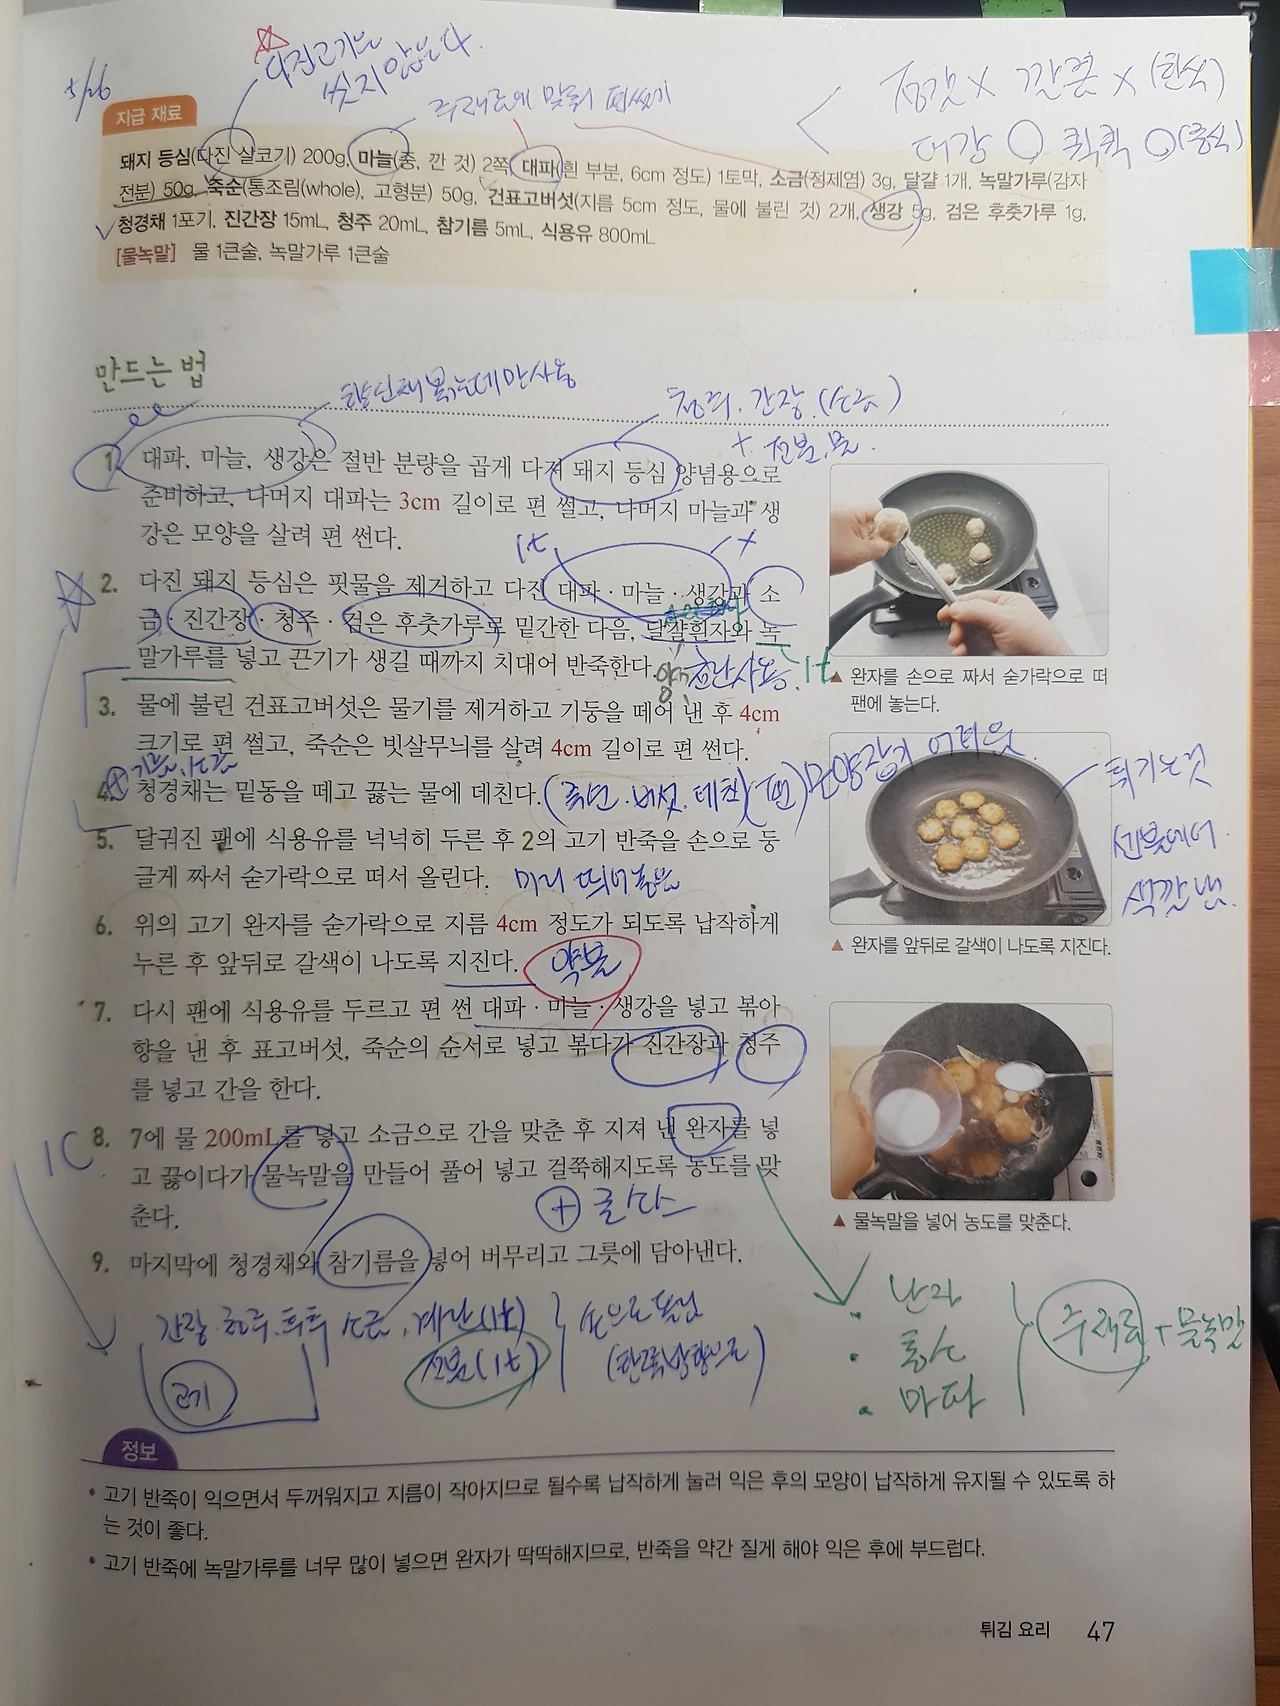 5/26
다진고기는
씻지 않는다.
주재료에 맞춰 편썰기
정갯 X 깔끔 X (한식)
대강 ○ 퀵퀵 ○ (중식)
지급 재료
돼지 등심(다진 살코기) 200g, 마늘(중, 깐 것) 2쪽, 대파(흰 부분, 6cm 정도) 1토막, 소금(정제염) 3g, 달걀 1개, 녹말가루(감자
전분) 50g, 죽순(통조림(whole), 고형분) 50g, 건표고버섯(지름 5cm 정도, 물에 불린 것) 2개, 생강 5g, 검은 후춧가루 1g,
청경채 1포기, 진간장 15mL, 청주 20mL, 참기름 5mL, 식용유 800mL
[물녹말] 물 1큰술, 녹말가루 1큰술
만드는 법
향신채 볶는데만사용
청주. 간장. (소금)
+ 전분. 물.
1. 대파, 마늘, 생강은 절반 분량을 곱게 다져 돼지 등심 양념용으로
준비하고, 나머지 대파는 3cm 길이로 편 썰고, 나머지 마늘과 생
강은 모양을 살려 편 썬다.
1t
X
2. 다진 돼지 등심은 핏물을 제거하고 다진 대파 · 마늘 · 생강과 소
금 · 진간장 · 청주 · 검은 후춧가루로 밑간한 다음, 달걀흰자와 녹
말가루를 넣고 끈기가 생길 때까지 치대어 반죽한다.
사용. 1t
3. 물에 불린 건표고버섯은 물기를 제거하고 기둥을 떼어 낸 후 4cm
크기로 편 썰고, 죽순은 빗살무늬를 살려 4cm 길이로 편 썬다.
기름. 소금
4. 청경채는 밑동을 떼고 끓는 물에 데친다. (죽순. 버섯. 데침) (편) 모양잡기 어려움
5. 달궈진 팬에 식용유를 넉넉히 두른 후 2의 고기 반죽을 손으로 둥
글게 짜서 숟가락으로 떠서 올린다. 미리 띄어놓음
6. 위의 고기 완자를 숟가락으로 지름 4cm 정도가 되도록 납작하게
누른 후 앞뒤로 갈색이 나도록 지진다. 약불
7. 다시 팬에 식용유를 두르고 편 썬 대파 · 마늘 · 생강을 넣고 볶아
향을 낸 후 표고버섯, 죽순의 순서로 넣고 볶다가 진간장과 청주
를 넣고 간을 한다.
1C
8. 7에 물 200mL를 넣고 소금으로 간을 맞춘 후 지져 낸 완자를 넣
고 끓이다가 물녹말을 만들어 풀어 넣고 걸쭉해지도록 농도를 맞
춘다.
+ 굴소스
9. 마지막에 청경채와 참기름을 넣어 버무리고 그릇에 담아낸다.
▲ 완자를 손으로 짜서 숟가락으로 떠
팬에 놓는다.
튀기는것
센불에서
색깔 냄.
▲ 완자를 앞뒤로 갈색이 나도록 지진다.
▲ 물녹말을 넣어 농도를 맞춘다.
간장. 청주. 후추 소금. 계란(1t)
전분(1t)
고기
손으로 돌님
(한쪽방향으로)
난자
통스
마파
주재료 + 물녹말
정보
• 고기 반죽이 익으면서 두꺼워지고 지름이 작아지므로 될수록 납작하게 눌러 익은 후의 모양이 납작하게 유지될 수 있도록 하
는 것이 좋다.
• 고기 반죽에 녹말가루를 너무 많이 넣으면 완자가 딱딱해지므로, 반죽을 약간 질게 해야 익은 후에 부드럽다.
튀김 요리 47